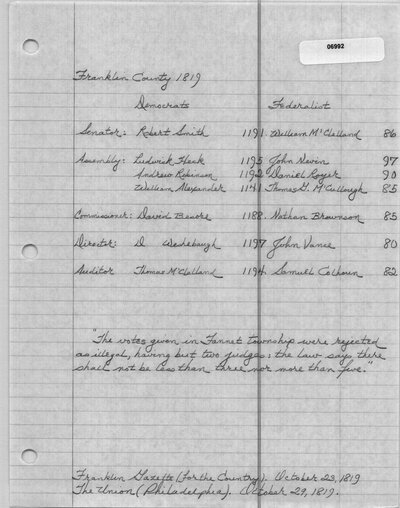 06992
Franklin County 1819
Democrats Federalist
Senator: Robert Smith 1191. William McClelland 86
Assembly: Ludwick Heck 1195 John Nevin 97
Andrew Robinson 1192 Daniel Royer 90
William Alexander 1141 Thomas G. McCullough 85
Commissioner: David Beaore 1188. Nathan Brownson 85
Director: D 1197 John Vance 80
Auditor Thomas McClelland 1194. Samuel Colhoun 82
"The votes given in Fannet township were rejected
as illegal, having but two judges: the law says there
shall not be less than three nor more than five."
Franklin Gazette (For the Country). October 23, 1819
The Union (Philadelphia). October 29, 1819.